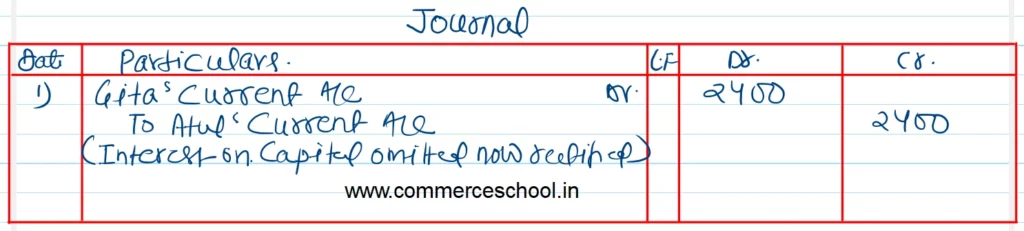 Journal
Date Particulars. L.F Dr. Cr.
1) Gita's Current A/c Dr. 2400
To Atul's Current A/c 2400
(Interest on Capital omitted now rectified)
www.commerceschool.in